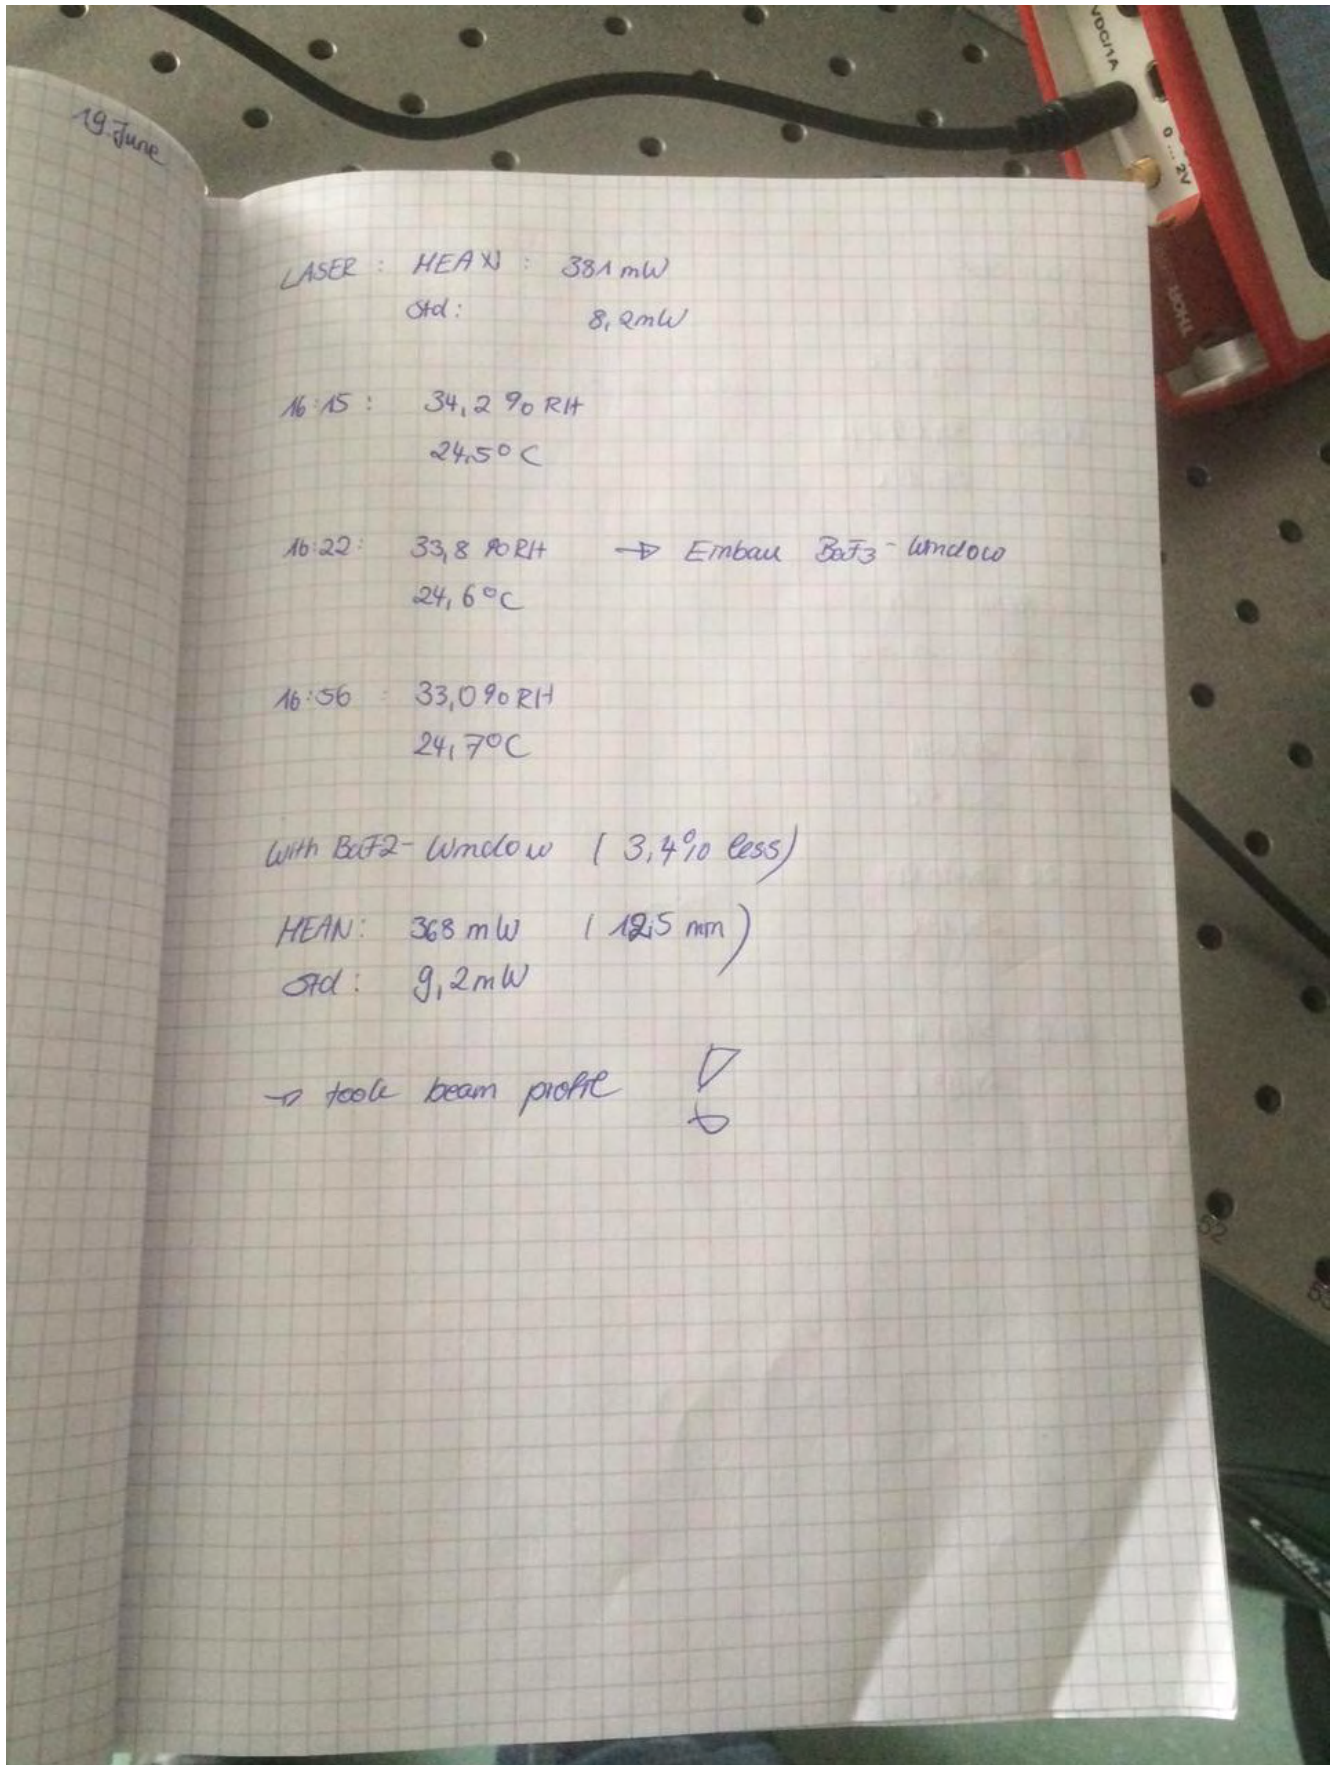 19. June
LASER : MEAN : 381 mW
Std : 8,2mW
16:15 : 34,2 % RH
24,5° C
16:22 : 33,8 % RH → Einbau BaF3 - Window
24,6°C
16:56 : 33,0 % RH
24,7°C
With BaF2- Window ( 3,4% less)
MEAN: 368 mW ( 12,5 mm )
Std : 9,2mW
→ took beam profile !
VDC/1A
0 ... 2V
THOR
52
53